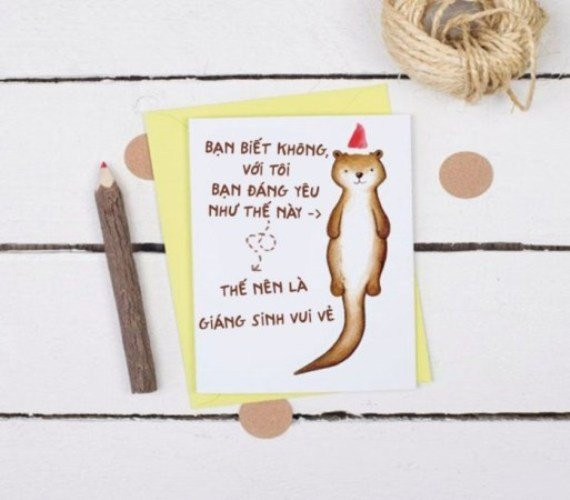 BẠN BIẾT KHÔNG,
VỚI TÔI
BẠN ĐÁNG YÊU
NHƯ THẾ NÀY ->
THẾ NÊN LÀ
GIÁNG SINH VUI VẺ